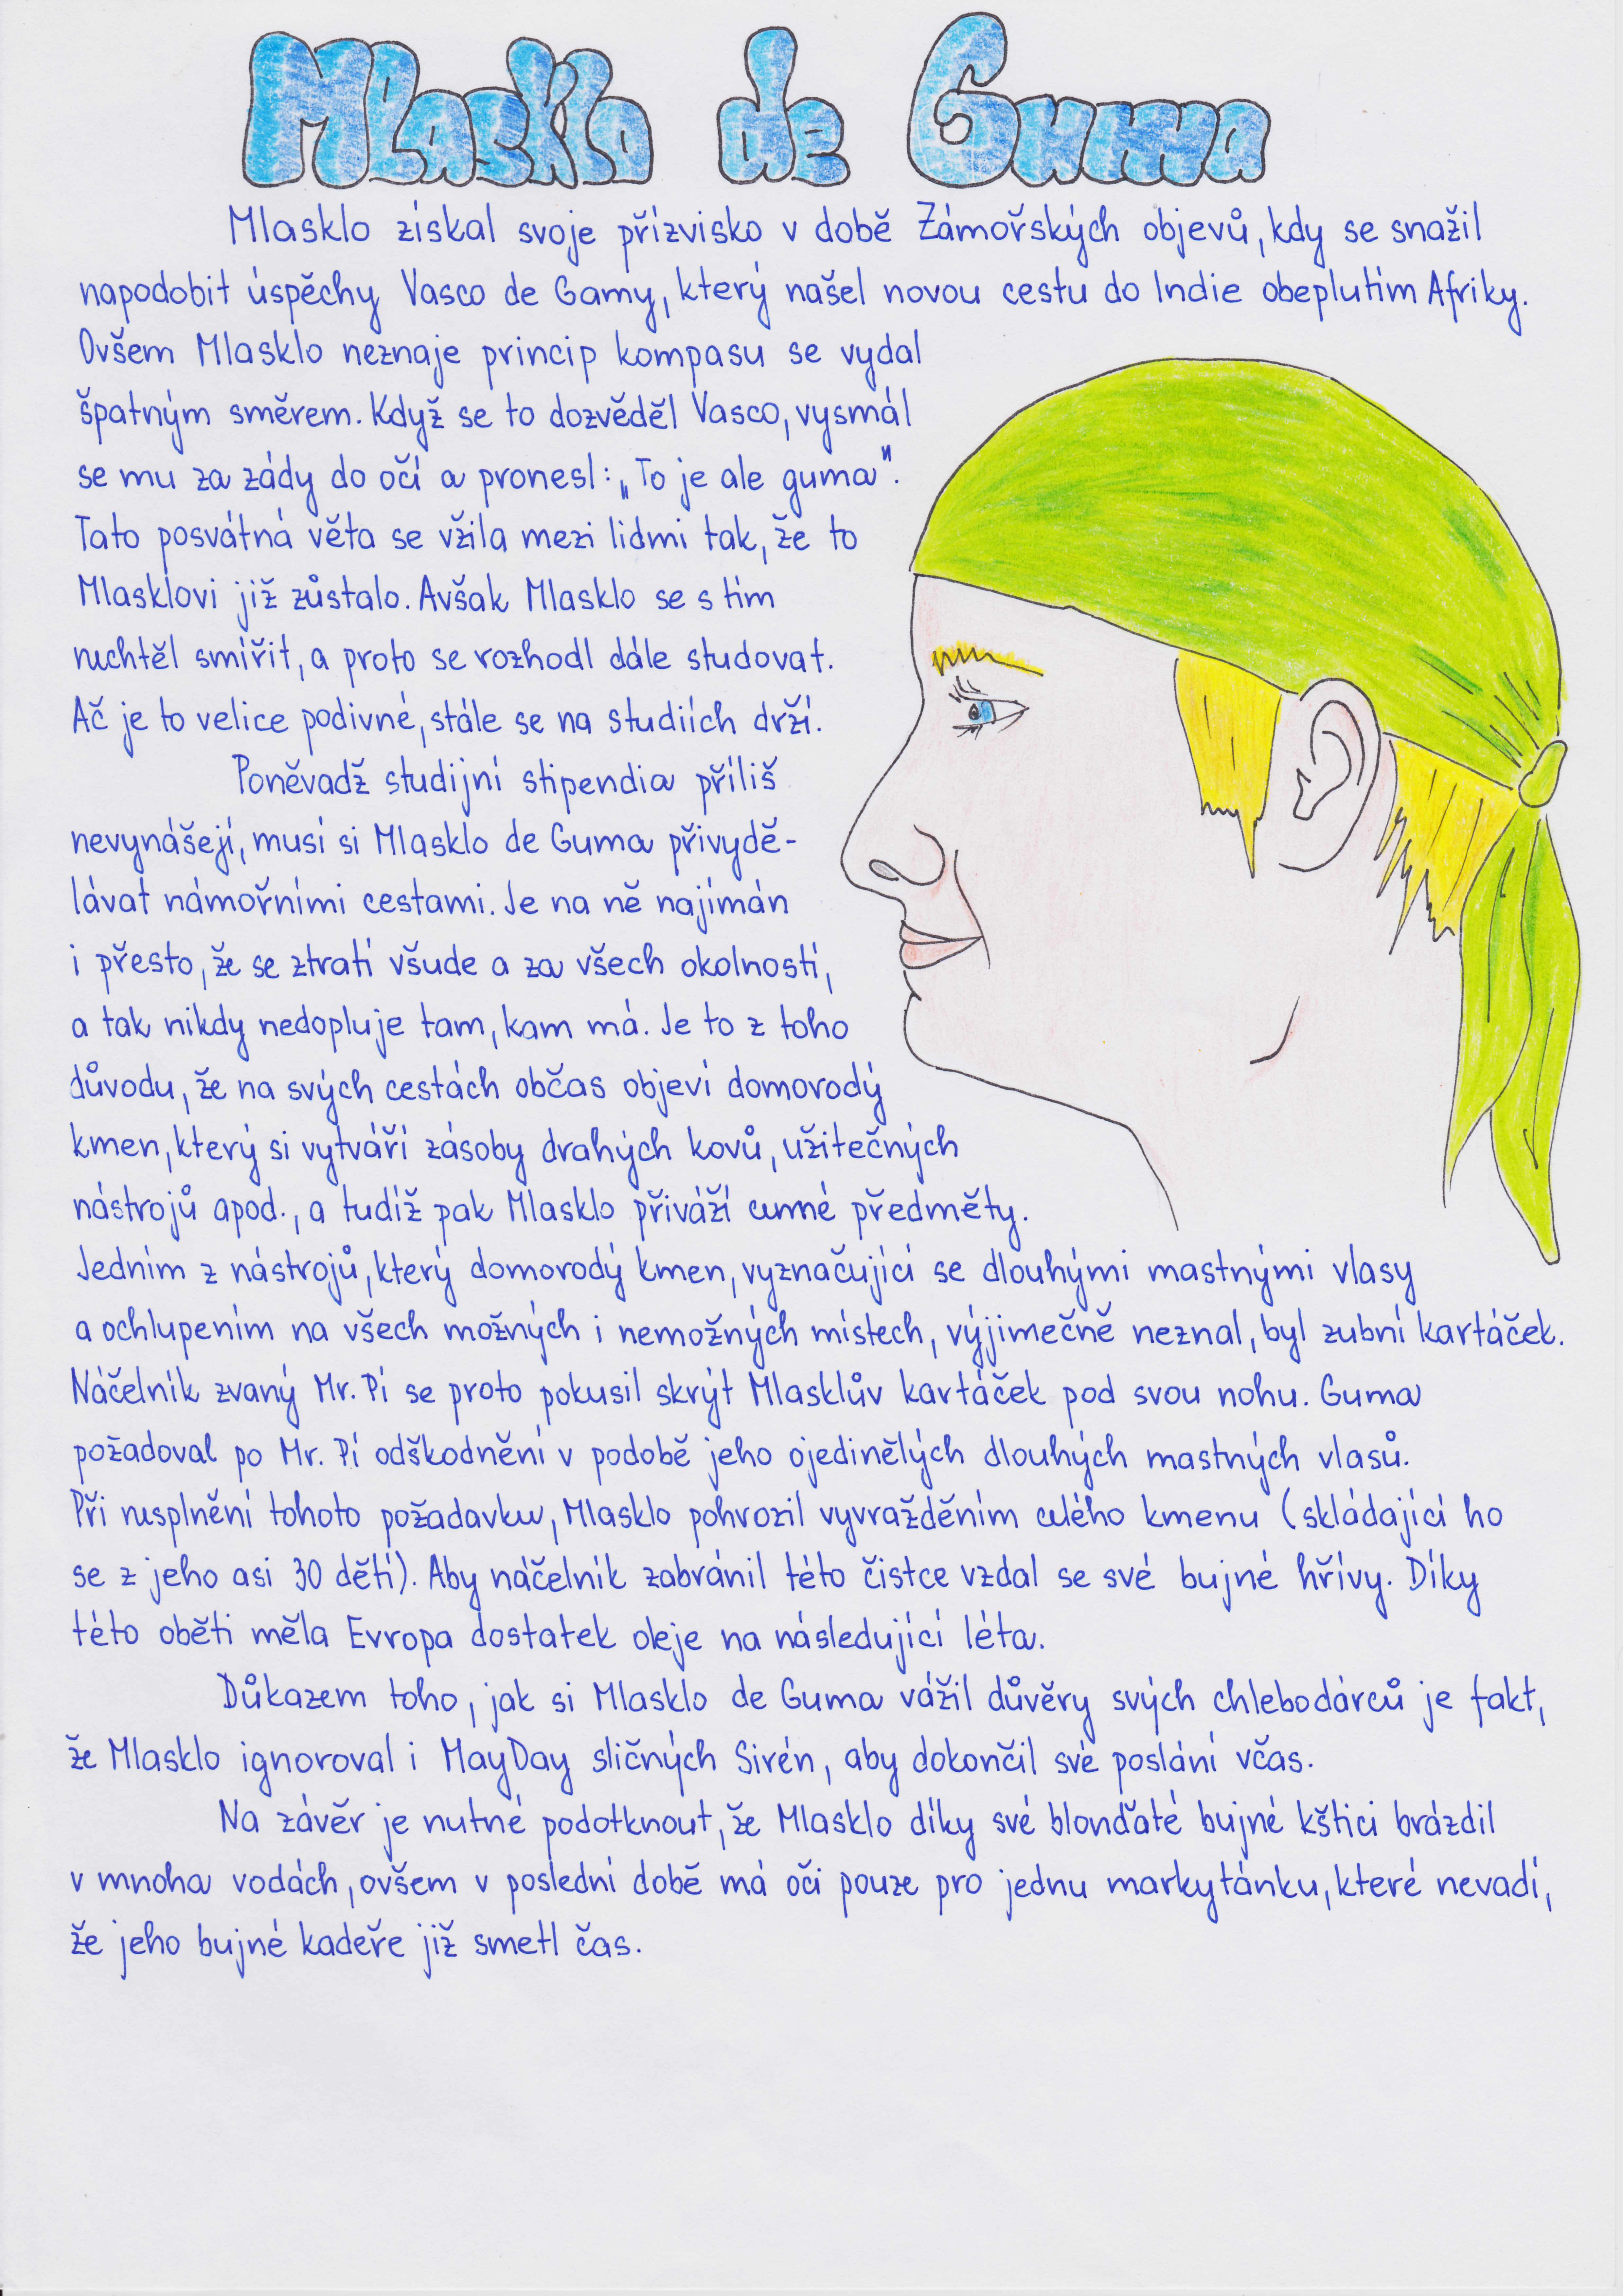 Mlasklo de Guma
Mlasklo získal svoje přízvisko v době Zámořských objevů, kdy se snažil
napodobit úspěchy Vasco de Gamy, který našel novou cestu do Indie obeplutím Afriky.
Ovšem Mlasklo neznaje princip kompasu se vydal
špatným směrem. Když se to dozvěděl Vasco, vysmál
se mu za zády do očí a pronesl: „To je ale guma".
Tato posvátná věta se vžila mezi lidmi tak, že to
Mlasklovi již zůstalo. Avšak Mlasklo se s tím
nechtěl smířit, a proto se rozhodl dále studovat.
Ač je to velice podivné, stále se na studiích drží.
Poněvadž studijní stipendia příliš
nevynášejí, musí si Mlasklo de Guma přivydě-
lávat námořními cestami. Je na ně najímán
i přesto, že se ztratí všude a za všech okolností,
a tak nikdy nedopluje tam, kam má. Je to z toho
důvodu, že na svých cestách občas objeví domorodý
kmen, který si vytváří zásoby drahých kovů, užitečných
nástrojů apod., a tudíž pak Mlasklo přiváží cenné předměty.
Jedním z nástrojů, který domorodý kmen, vyznačující se dlouhými mastnými vlasy
a ochlupením na všech možných i nemožných místech, výjimečně neznal, byl zubní kartáček.
Náčelník zvaný Mr. Pí se proto pokusil skrýt Mlasklův kartáček pod svou nohu. Guma
požadoval po Mr. Pí odškodnění v podobě jeho ojedinělých dlouhých mastných vlasů.
Při nesplnění tohoto požadavku, Mlasklo pohrozil vyvražděním celého kmenu (skládající ho
se z jeho asi 30 dětí). Aby náčelník zabránil této čistce vzdal se své bujné hřívy. Díky
této oběti měla Evropa dostatek oleje na následující léta.
Důkazem toho, jak si Mlasklo de Guma vážil důvěry svých chlebodárců je fakt,
že Mlasklo ignoroval i MayDay sličných Sirén, aby dokončil své poslání včas.
Na závěr je nutné podotknout, že Mlasklo díky své blonďaté bujné kštici brázdil
v mnoha vodách, ovšem v poslední době má oči pouze pro jednu markytánku, které nevadí,
že jeho bujné kadeře již smetl čas.